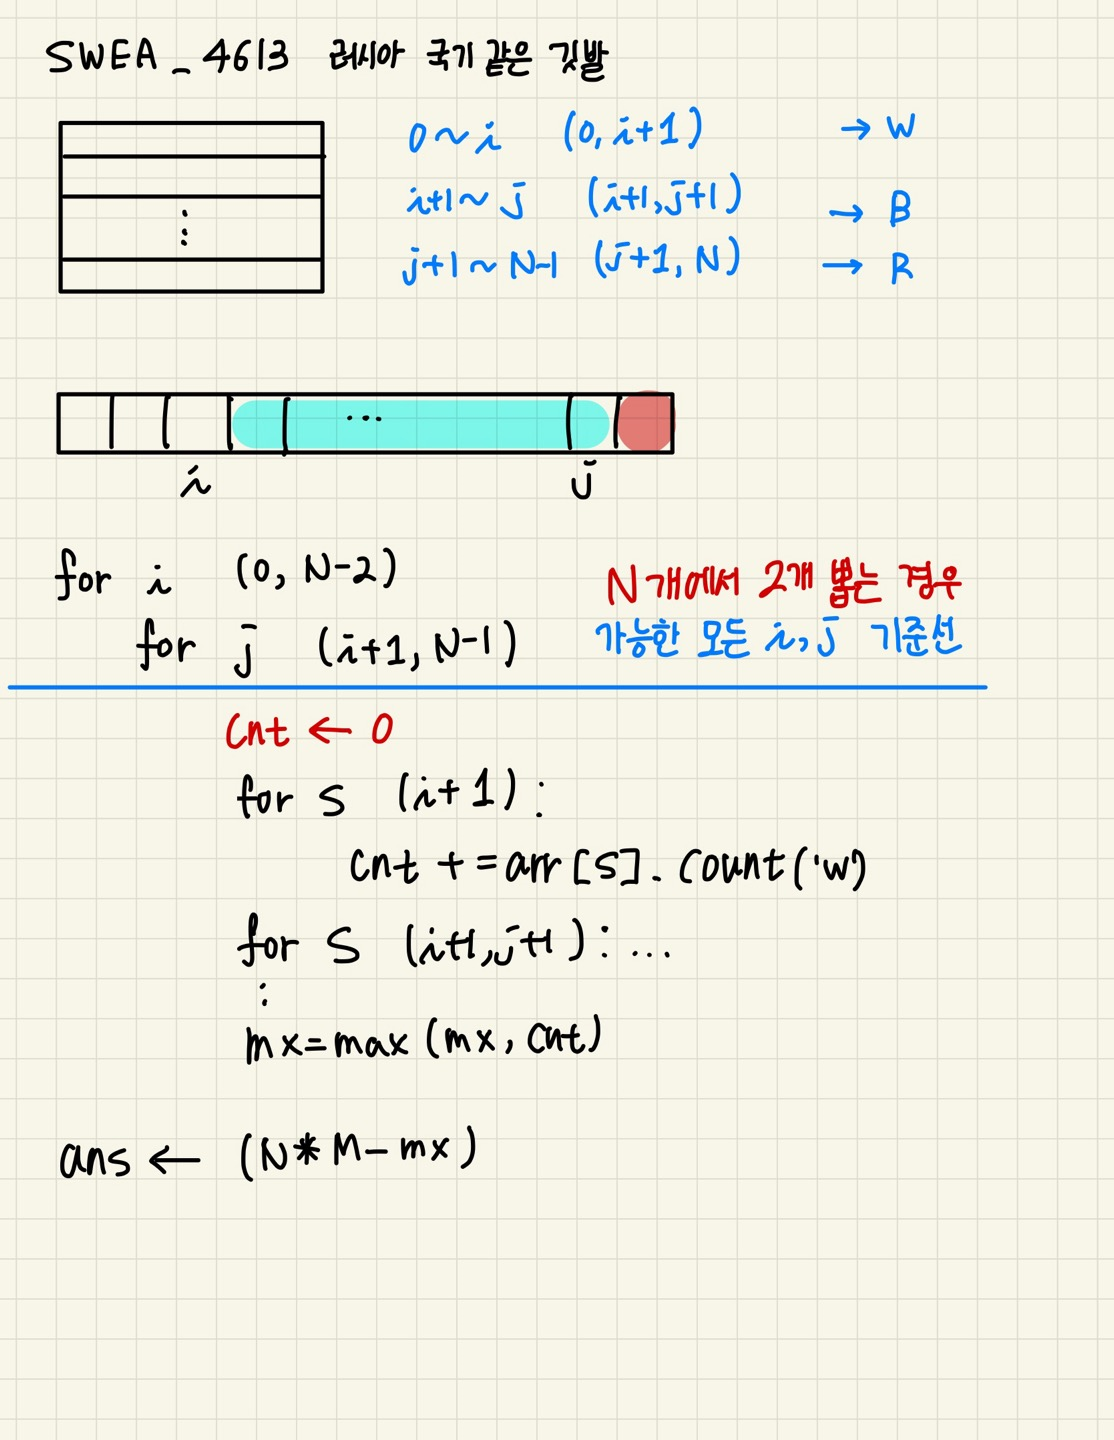 SWEA_4613 러시아 국기 같은 깃발
0~i (0, i+1) → W
i+1~j (i+1, j+1) → B
j+1~N-1 (j+1, N) → R
...
i j
for i (0, N-2)
for j (i+1, N-1)
N개에서 2개 뽑는 경우
가능한 모든 i, j 기준선
Cnt ← 0
for s (i+1):
cnt += arr[s].count('w)
for s (i+1, j+1): ...
:
mx=max (mx, cnt)
ans ← (N*M-mx)